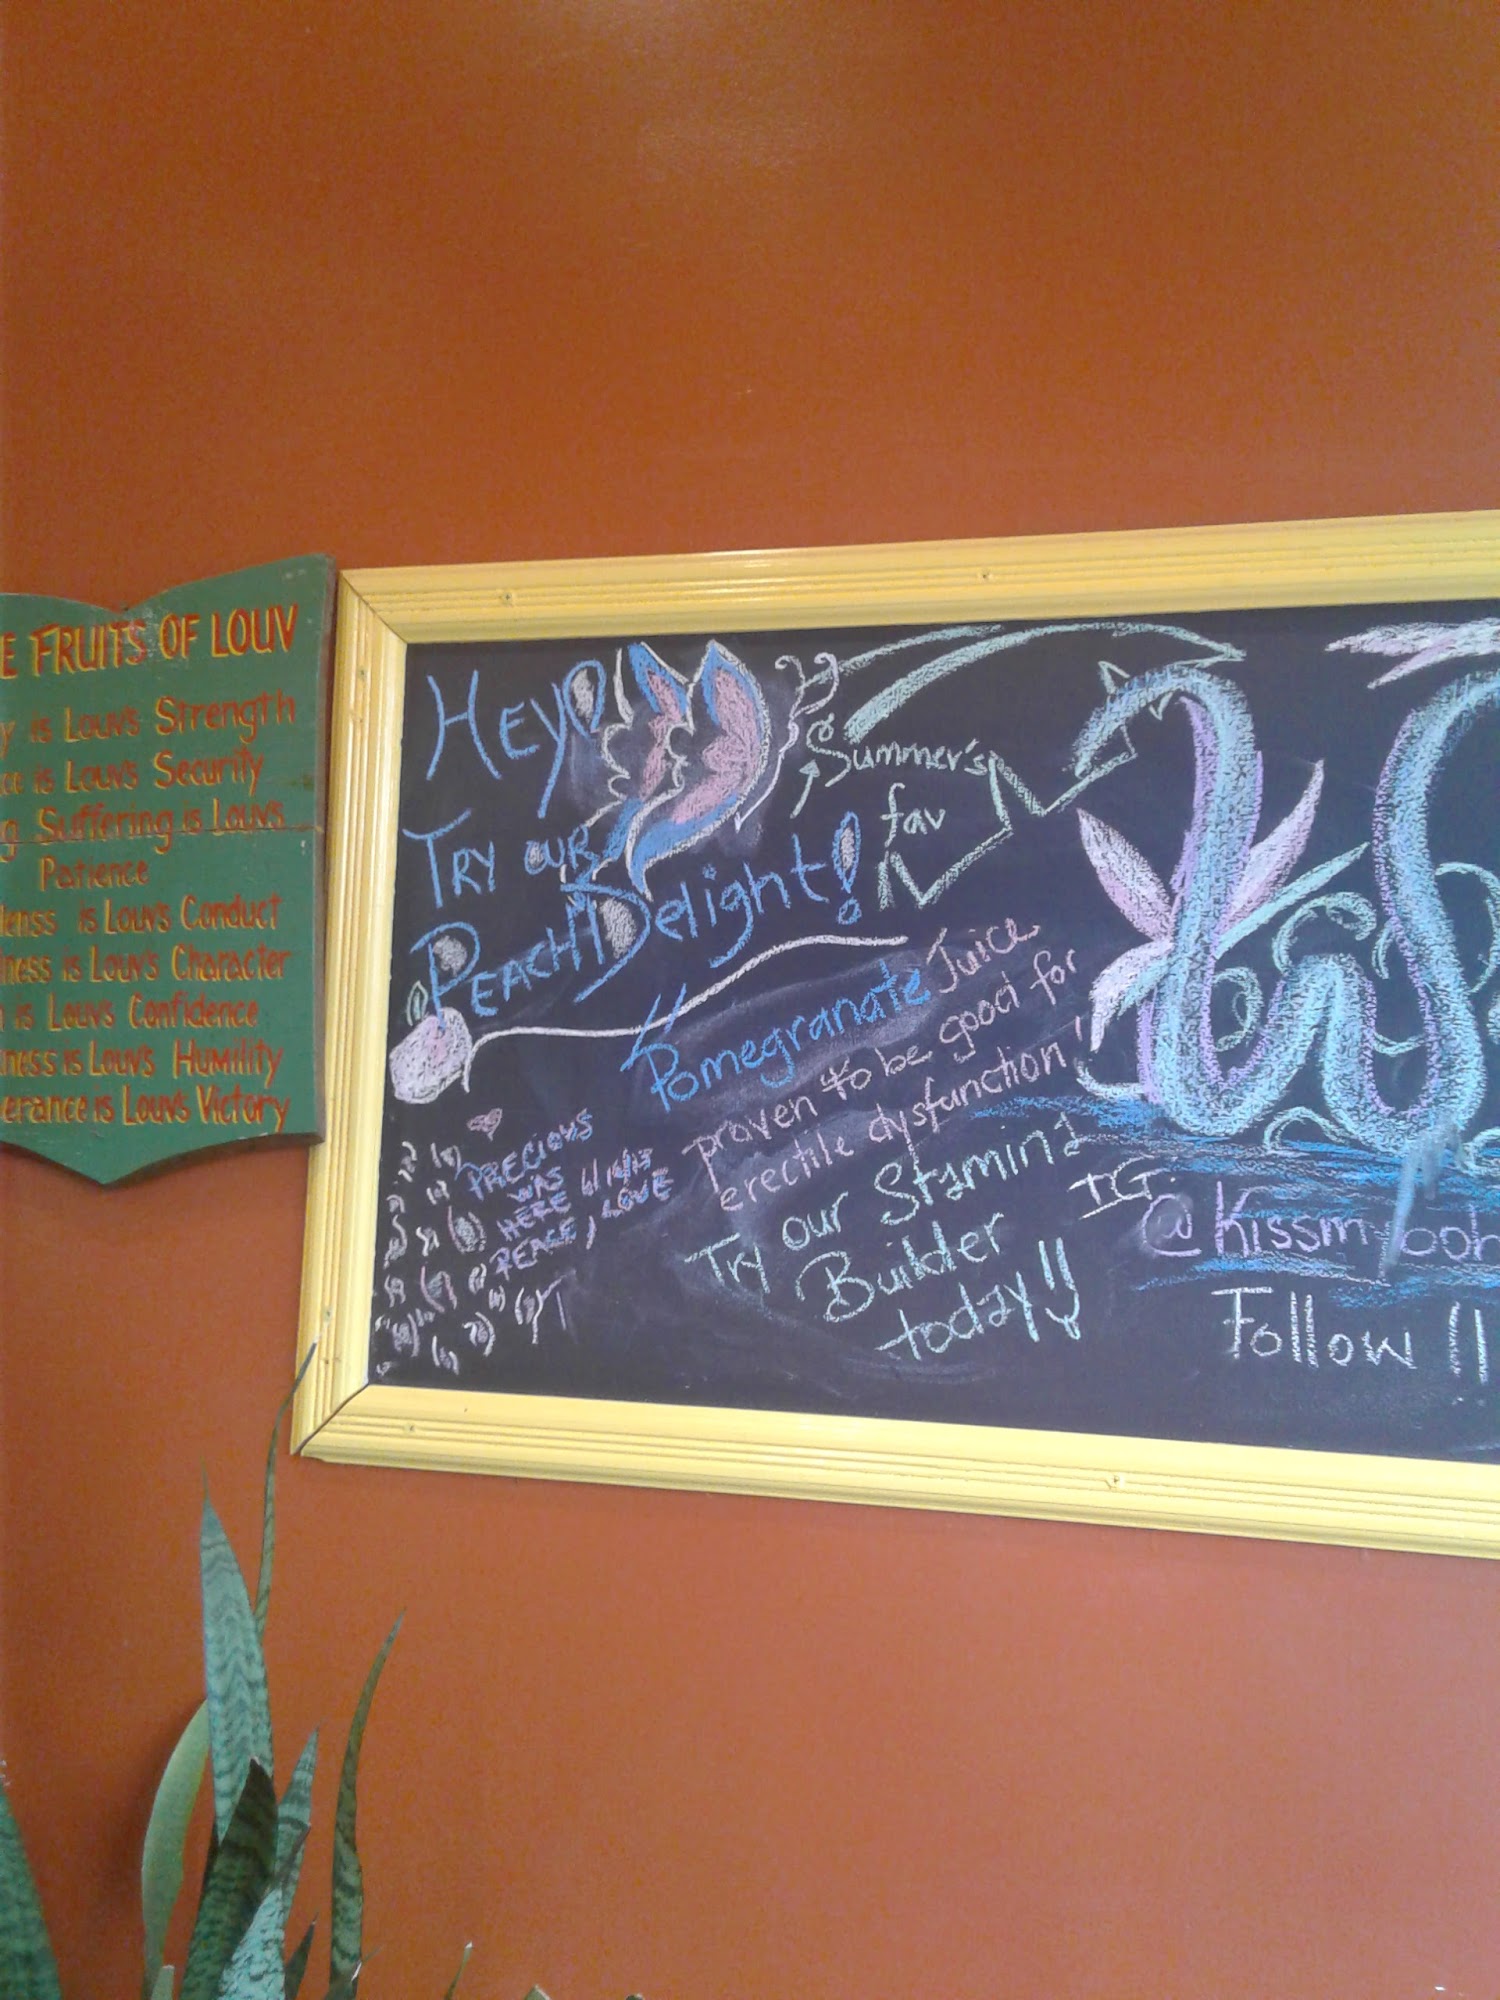 E FRUITS OF LOUV
y is Louv's Strength
ce is Louv's Security
g Suffering is Louv's
Patience
leness is Louv's Conduct
ness is Louv's Character
is Louv's Confidence
ness is Louv's Humility
verance is Louv's Victory
HEY!
TRY OUR
PEACH Delight!
Summer's
fav
Pomegranate Juice
proven to be good for
erectile dysfunction!
Try our Stamina
Builder
today!!
PRECIOUS
WAS
HERE
PEACE, LOVE
IG
@Kissm
Follow !!